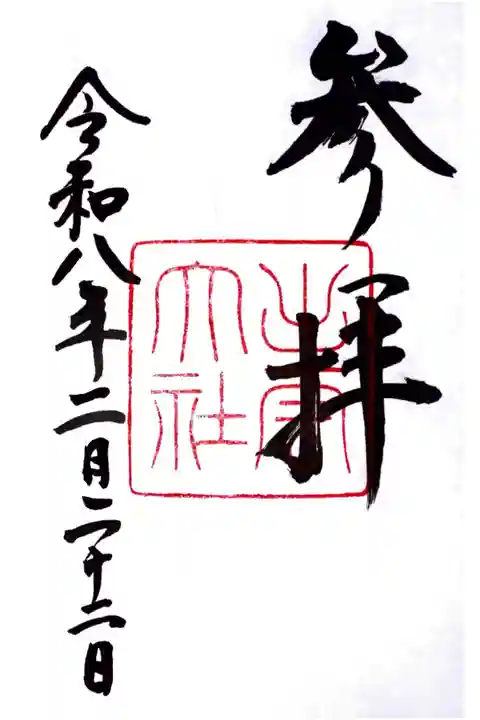 参拝
出雲大社
令和八年二月二十二日